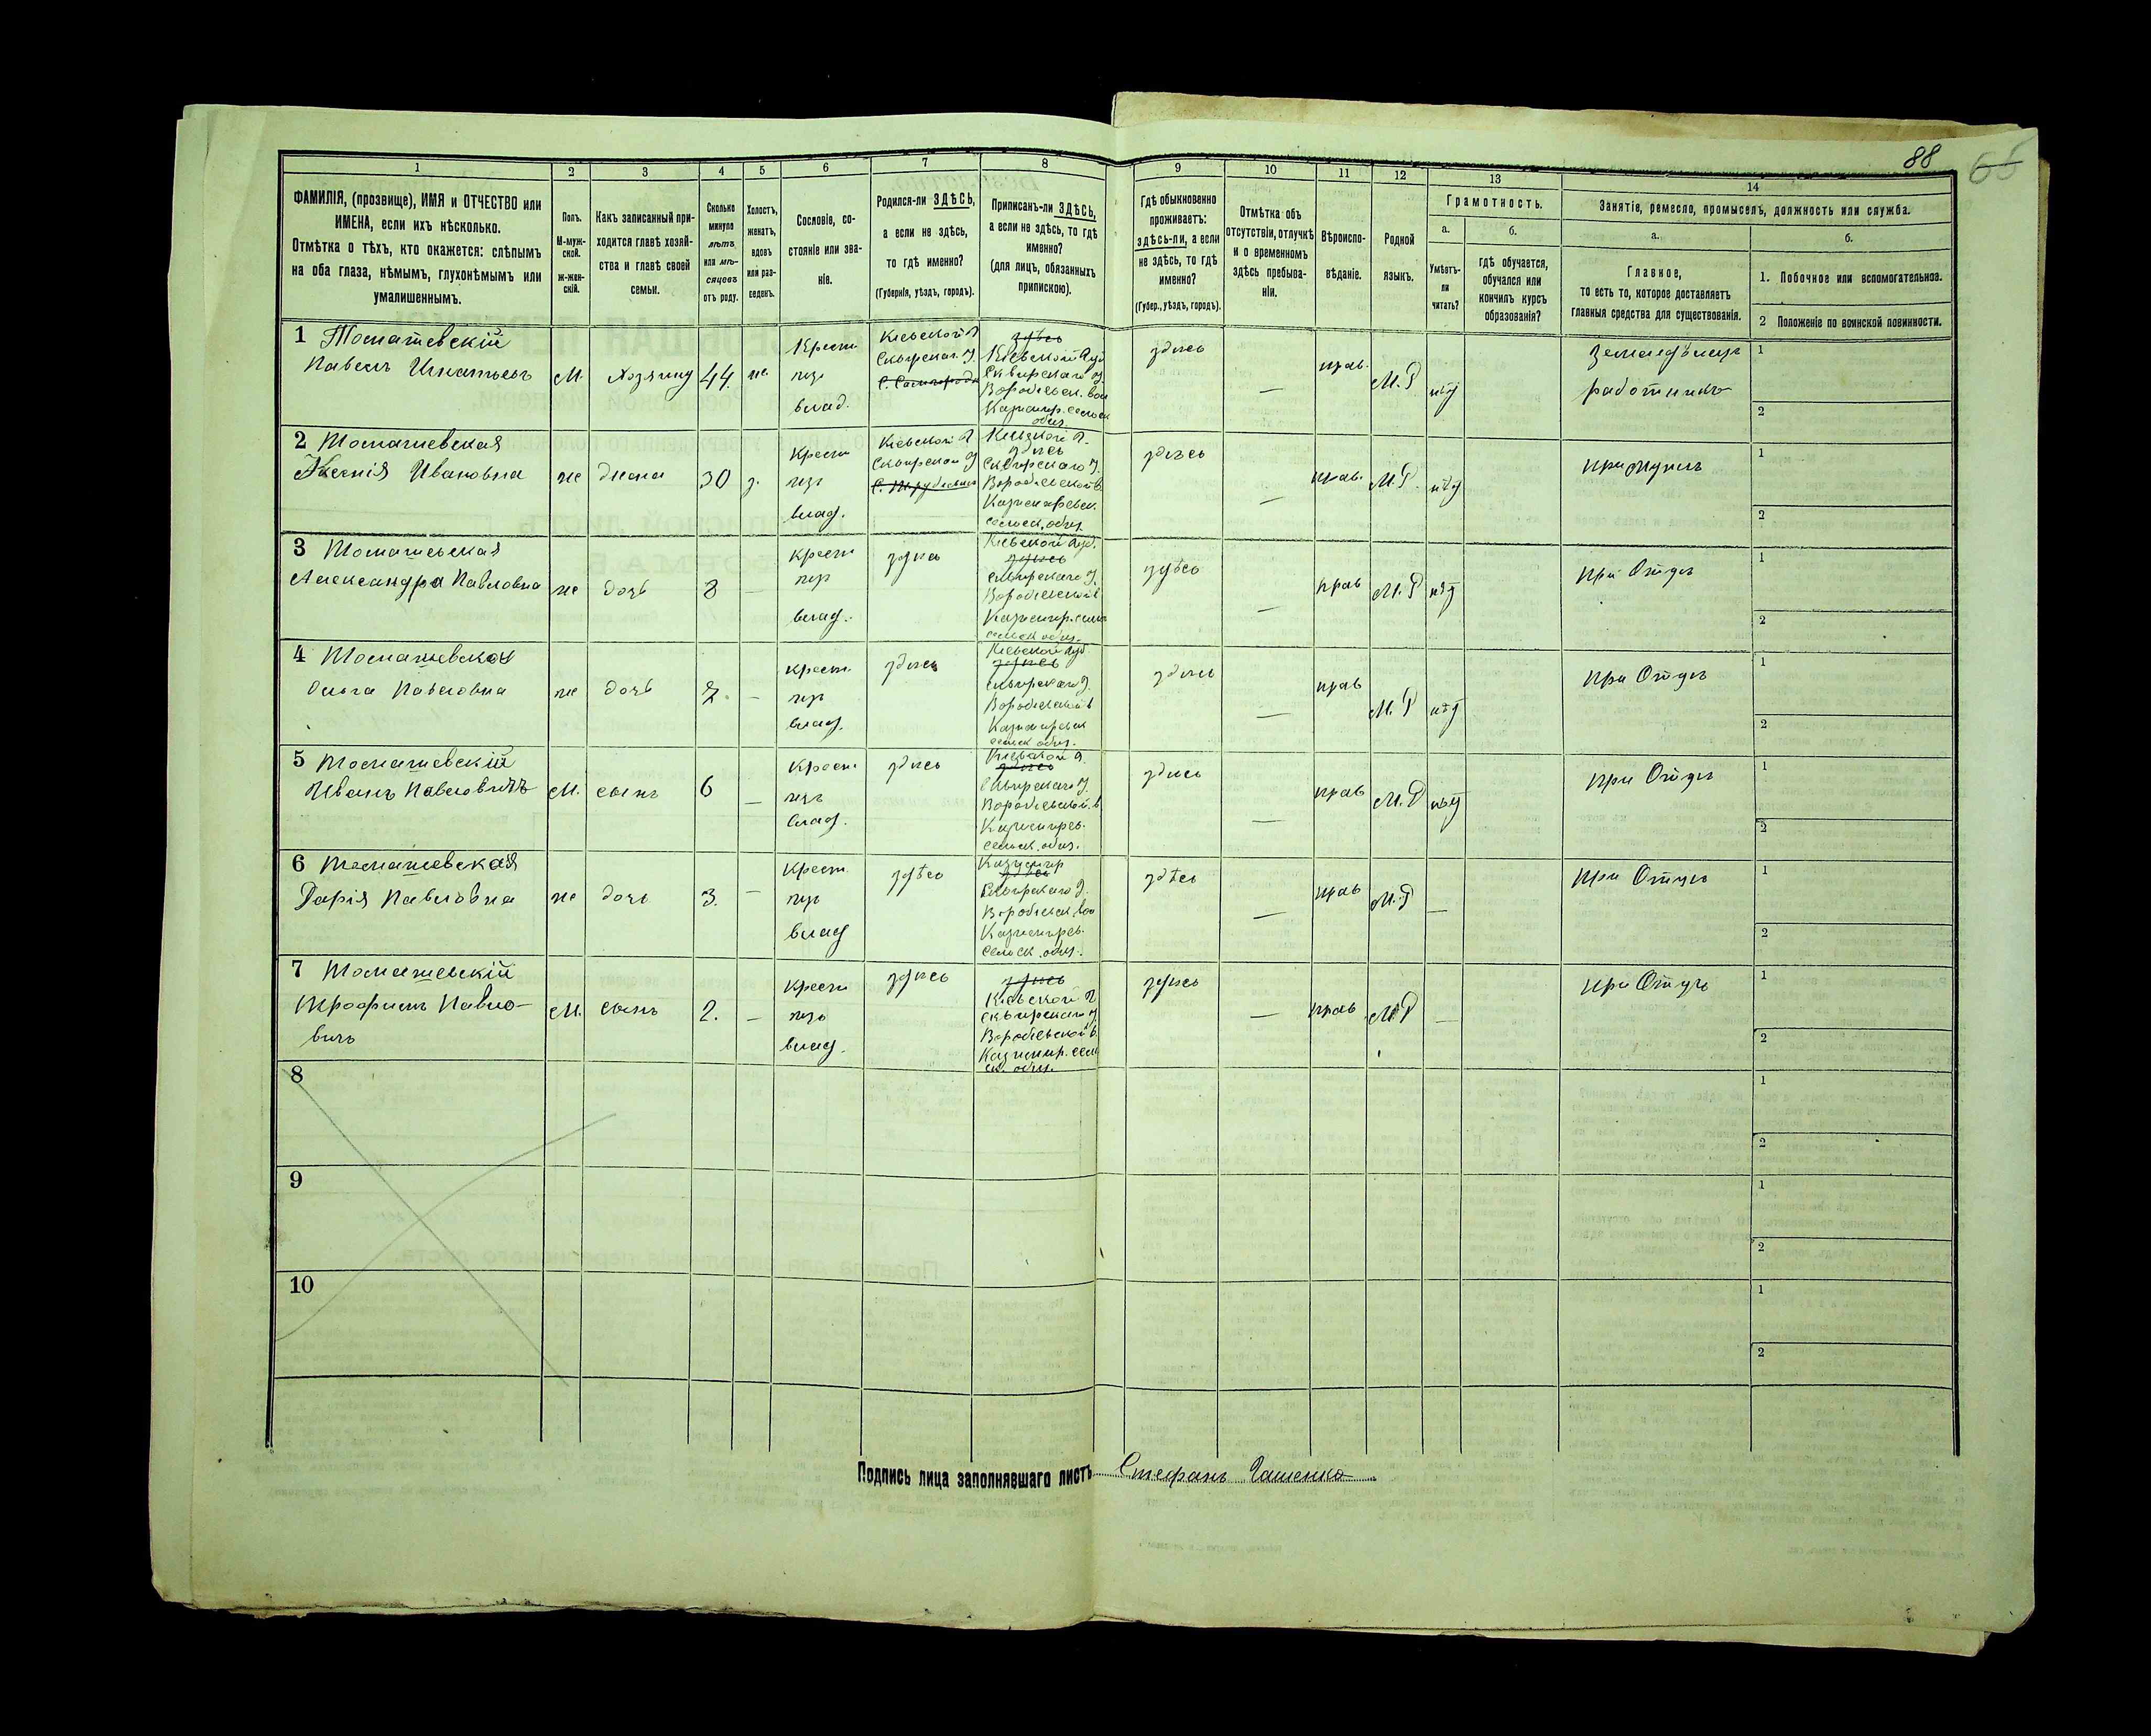 88
66
1
2
3
4
5
6
7
8
9
10
11
12
13
14
ФАМИЛІЯ, (прозвище), ИМЯ и ОТЧЕСТВО или
ИМЕНА, если ихъ нѣсколько.
Отмѣтка о тѣхъ, кто окажется: слѣпымъ
на оба глаза, нѣмымъ, глухонѣмымъ или
умалишеннымъ.
Полъ.
М-муж-
ской.
ж-жен-
скій.
Какъ записанный при-
ходится главѣ хозяй-
ства и главѣ своей
семьи.
Сколько
минуло
лѣтъ
или мѣ-
сяцевъ
отъ роду.
Холостъ,
женатъ,
вдовъ
или раз-
веденъ.
Сословіе, со-
стояніе или зва-
ніе.
Родился-ли ЗДѢСЬ,
а если не здѣсь,
то гдѣ именно?
(Губернія, уѣздъ, городъ).
Приписанъ-ли ЗДѢСЬ,
а если не здѣсь, то гдѣ
именно?
(для лицъ, обязанныхъ
припискою).
Гдѣ обыкновенно
проживаетъ:
здѣсь-ли, а если
не здѣсь, то гдѣ
именно?
(Губер., уѣздъ, городъ).
Отмѣтка объ
отсутствіи, отлучкѣ
и о временномъ
здѣсь пребыва-
ніи.
Вѣроиспо-
вѣданіе.
Родной
языкъ.
Грамотность.
а.
Умѣетъ-
ли
читать?
б.
гдѣ обучается,
обучался или
кончилъ курсъ
образованія?
Занятіе, ремесло, промыселъ, должность или служба.
а.
Главное,
то есть то, которое доставляетъ
главныя средства для существованія.
б.
1. Побочное или вспомогательное.
2 Положеніе по воинской повинности.
1 Томашевскій
Павелъ Игнатьевъ
М.
Хозяинъ
44.
же.
Крест
изъ
влад.
Кіевской Г
Сквирскаг. У.
здѣсь
Кіевской Губ
Сквирскаго У.
Воробіевск. вол
Казимир. сельск
общ.
здѣсь
—
прав.
М. Р
нѣт
Земледѣлецъ
работникъ
1
2
2 Томашевская
Ксенія Ивановна
же
жена
30
з.
крест
изъ
влад.
Кіевской Г
Сквирской У
Кіевской Г.
здѣсь
Сквирскаго У.
Воробіевской в.
Казимировск.
сельск. общ.
здѣсь
—
прав.
М. Р.
нѣт
при мужѣ
1
2
3 Томашевская
Александра Павловна
же
дочь
8
—
крест
изъ
влад.
здѣсь
Кіевской Губ.
здѣсь
Сквирскаго У.
Воробіевской в
сельск общ.
здѣсь
—
прав
М. Р
нѣт
при Отцѣ
1
2
4 Томашевская
Ольга Павловна
же
дочь
7.
—
крест.
изъ
влад.
здѣсь
Кіевской Губ
здѣсь
Сквирскаго У.
Воробіевской в
Казимировск
сельск общ.
здѣсь
—
прав
М. Р
нѣт
при Отцѣ
1
2
5 Томашевскій
Иванъ Павловичъ
М.
сынъ
6
—
Крест
изъ
влад.
здѣсь
Кіевской Г.
здѣсь
Сквирскаго У.
Воробіевской в
Казимиров.
сельск. общ.
здѣсь
—
прав
М. Р
нѣт
при Отцѣ
1
2
6 Томашевская
Дарія Павловна
же
дочь
3.
—
Крест.
изъ
влад
здѣсь
Казимир
здѣсь
Сквирскаго У.
Воробіевск. вол
Казимиров.
сельск. общ.
здѣсь
—
прав
М. Р
—
при Отцѣ
1
2
7 Томашевскій
Трофимъ Павло-
вичъ
М.
сынъ
2.
—
крест
изъ
влад.
здѣсь
здѣсь
Кіевской Г
Сквирскаго У.
Воробіевской в.
Казимир. сель
ск. общ.
здѣсь
—
прав.
М. Р
—
при Отцѣ
1
2
8
1
2
9
1
2
10
1
2
Подпись лица заполнявшаго листъ Стефанъ